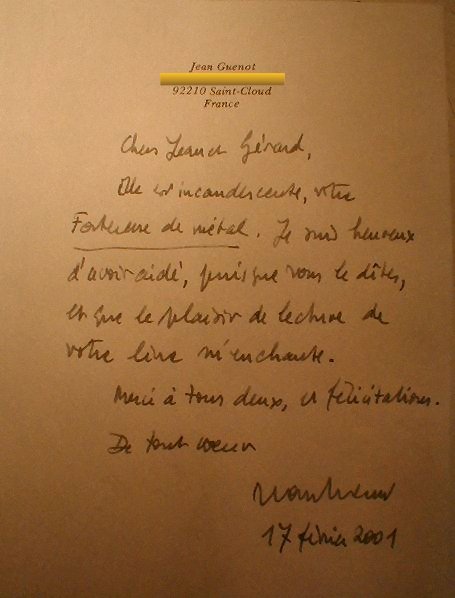 Jean Guenot
92210 Saint-Cloud
France
Chers Jean et Gérard,
Elle est incandescente, votre
Forteresse de métal. Je suis heureux
d'avoir aidé, puisque vous le dîtes,
et que le plaisir de lecture de
votre livre m'enchante.
Merci à tous deux, et félicitations.
De tout coeur
17 février 2001